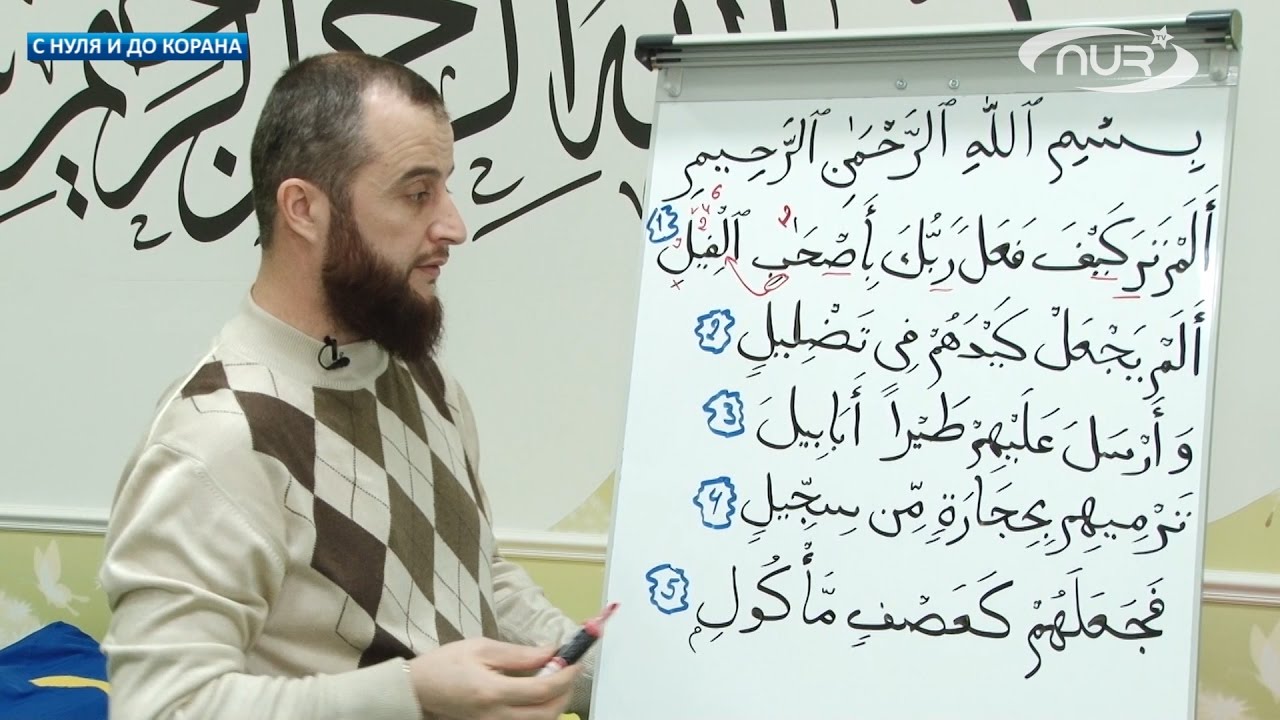 С НУЛЯ И ДО КОРАНА
NUR TV
بِسْمِ ٱللَّهِ ٱلرَّحْمَٰنِ ٱلرَّحِيمِ
أَلَمْ تَرَ كَيْفَ فَعَلَ رَبُّكَ بِأَصْحَٰبِ ٱلْفِيلِ 1
أَلَمْ يَجْعَلْ كَيْدَهُمْ فِى تَضْلِيلٍ 2
وَ أَرْسَلَ عَلَيْهِمْ طَيْرًا أَبَابِيلَ 3
تَرْمِيهِمْ بِحِجَارَةٍ مِّن سِجِّيلٍ 4
فَجَعَلَهُمْ كَعَصْفٍ مَّأْكُولٍ 5